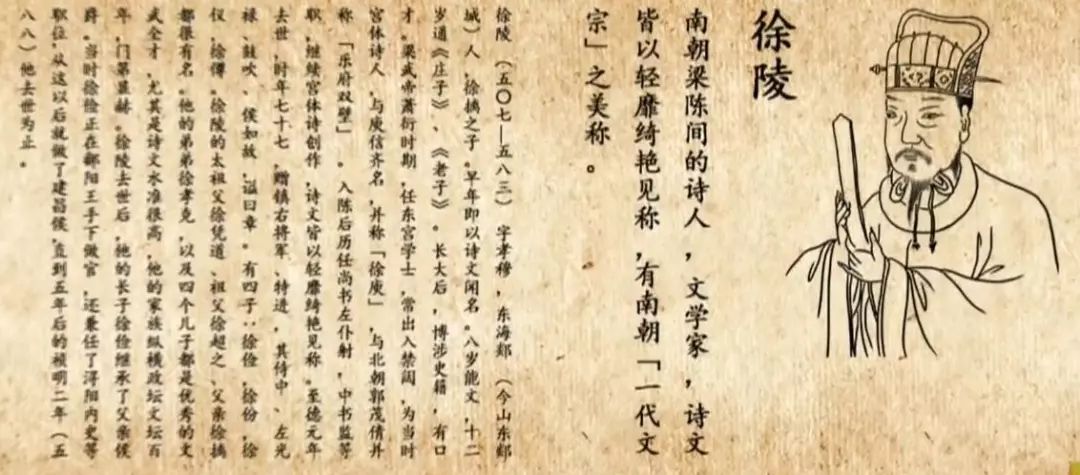 徐陵
南朝梁陈间的诗人,文学家,诗文
皆以轻靡绮艳见称,有南朝「一代文
宗」之美称。
徐陵 (五〇七—五八三) 字孝穆,东海郯 (今山东郯
城)人,徐摛之子。早年即以诗文闻名。八岁能文,十二
岁通《庄子》、《老子》。长大后,博涉史籍,有口
才。梁武帝萧衍时期,任东宫学士,常出入禁闼,为当时
宫体诗人,与庾信齐名,并称「徐庾」,与北朝郭茂倩并
称「乐府双璧」。入陈后历任尚书左仆射,中书监等
职,继续宫体诗创作,诗文皆以轻靡绮艳见称。至德元年
去世,时年七十七,赠镇右将军、特进,其侍中、左光
禄、鼓吹、侯如故,谥曰章。有四子:徐俭,徐份,徐
仪,徐僔。徐陵的太祖父徐凭道、祖父徐超之、父亲徐摛
都很有名。他的弟弟徐孝克,以及四个儿子都是优秀的文
武全才,尤其是诗文水准很高,他的家族纵横政坛文坛百
年,门第显赫。徐陵去世后,他的长子徐俭继承了父亲侯
爵。当时徐俭正在鄱阳王手下做官,还兼任了浔阳内史等
职位,从这以后就做了建昌侯,直到五年后的祯明二年(五
八八)他去世为止。